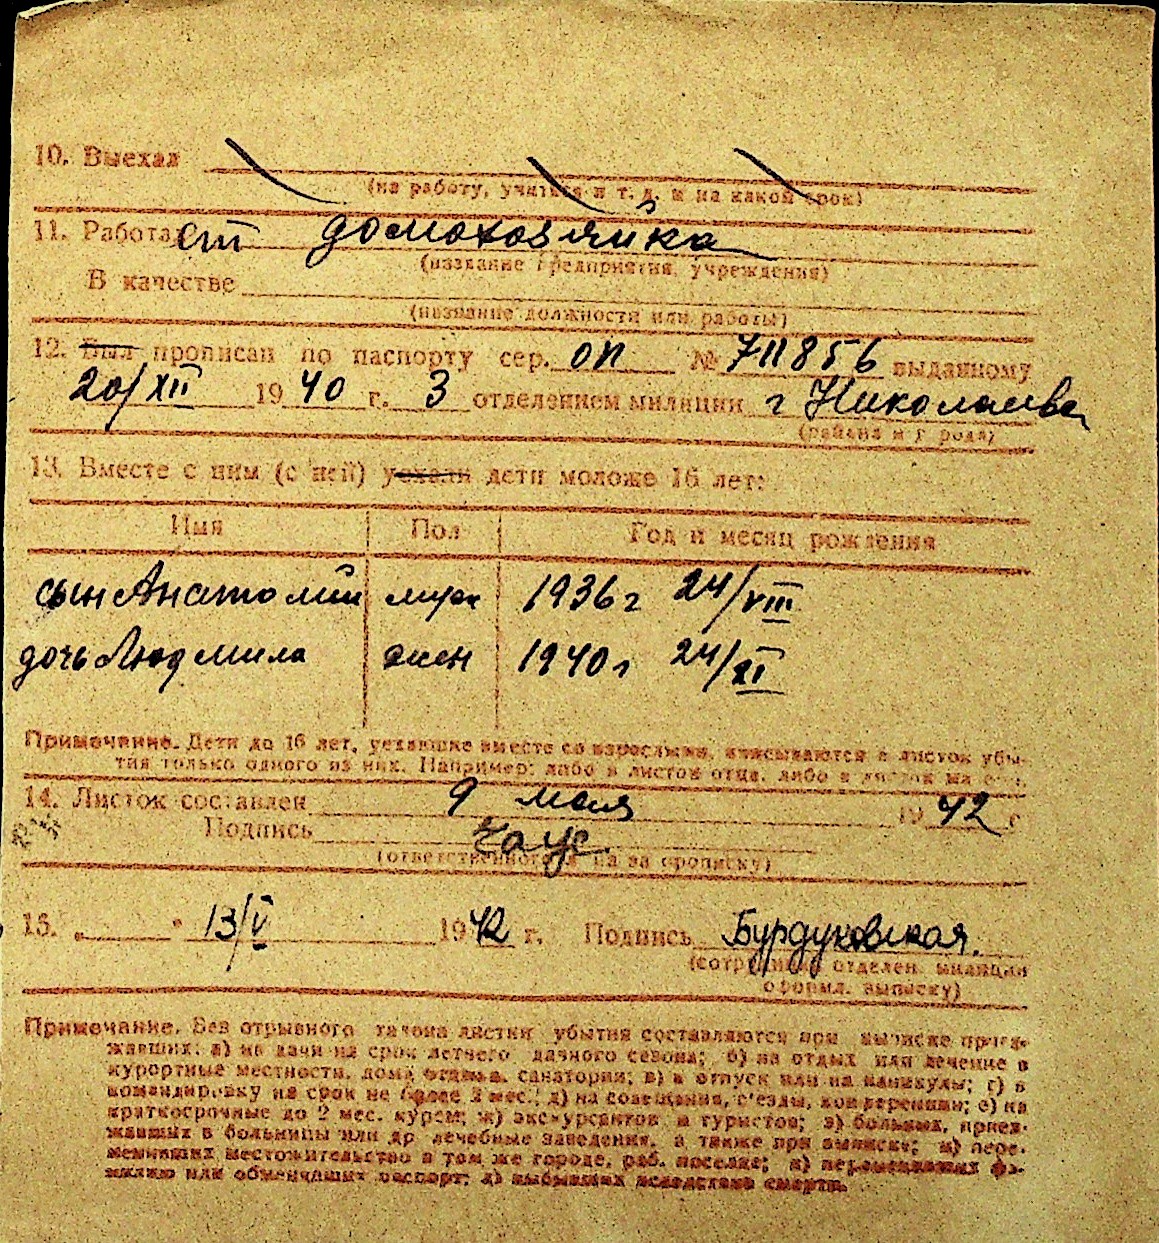 10. Выехал
(на работу, учиться и т. д. и на какой срок)
11. Работает домохозяйка
(название предприятия, учреждения)
В качестве
(название должности или работы)
12. Был прописан по паспорту сер. ОП № 711856 выданному
20/XII 1940 г. 3 отделением милиции г Николаева
(района и города)
13. Вместе с ним (с ней) уехали дети моложе 16 лет:
Имя Пол Год и месяц рождения
сын Анатолий муж 1936 г 24/VIII
дочь Людмила жен 1940 г 24/XI
Примечание. Дети до 16 лет, уехавшие вместе со взрослыми, вписываются в листок убы-
тия только одного из них. Например: либо в листок отца, либо в листок матери.
14. Листок составлен 9 мая 1942 г
Подпись Чаус
(ответственного лица за прописку)
15. „ " 13/V 1942 г. Подпись Бурдуковская.
(сотрудника отделен. милиции
оформл. выписку)
Примечание. Без отрывного талона листки убытия составляются при выписке приез-
жавших: а) на дачи на срок летнего дачного сезона; б) на отдых или лечение в
курортные местности, дома отдыха, санатории; в) в отпуск или на каникулы; г) в
командировку на срок не более 2 мес.; д) на совещания, с'езды, конференции; е) на
краткосрочные до 2 мес. курсы; ж) экскурсантов и туристов; з) больных, приез-
жавших в больницы или др лечебные заведения, а также при выписке; и) пере-
менивших местожительство в том же городе, раб. поселке; к) переменивших фа-
милию или обменявших паспорт; л) выбывших вследствие смерти.